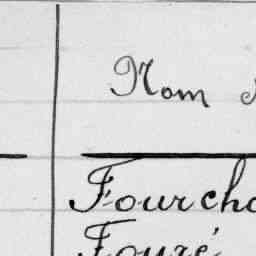 Nom
Fourcha
Fouré